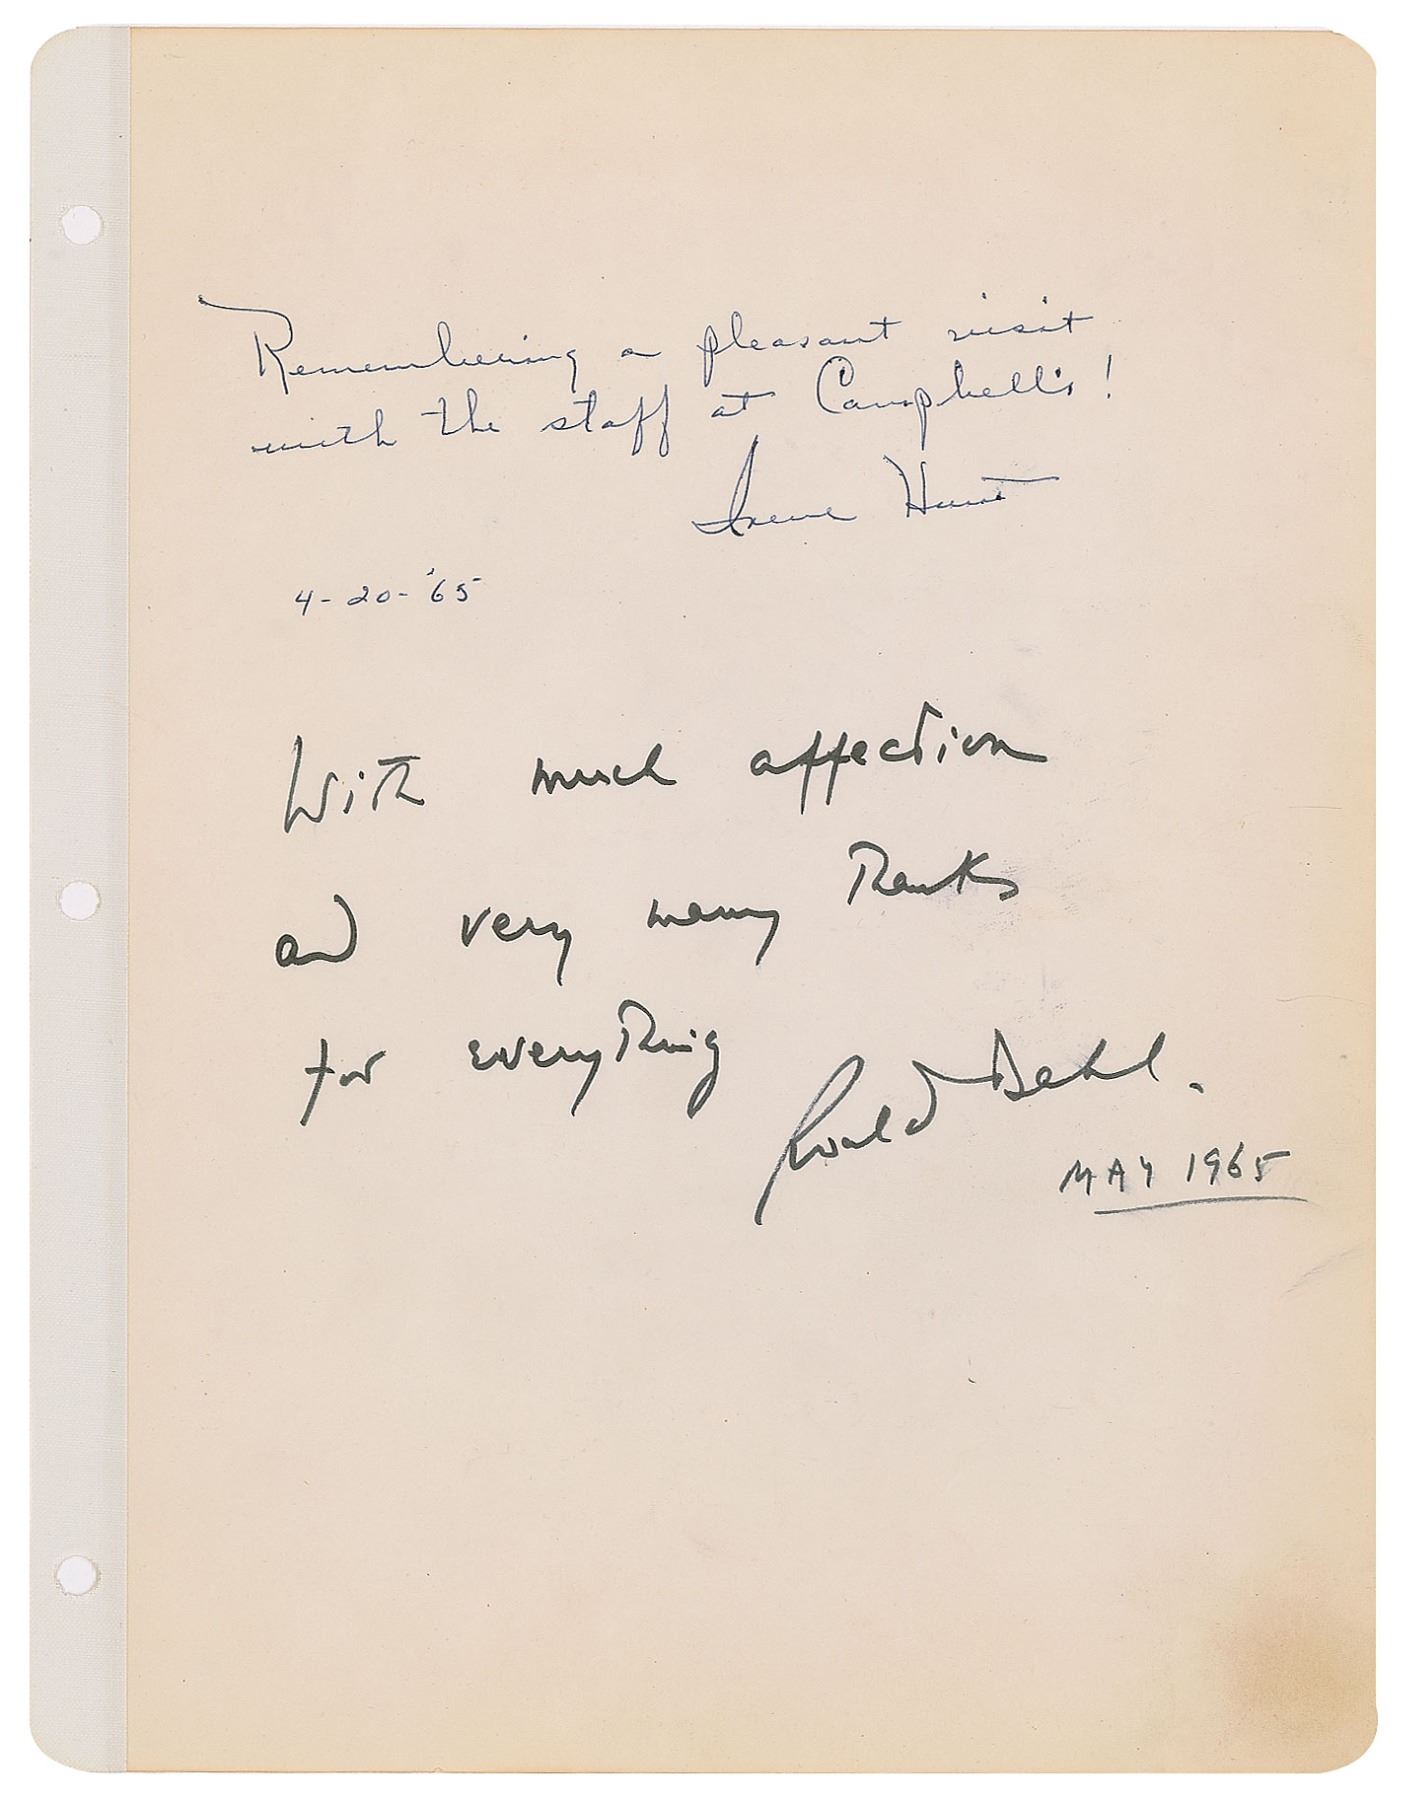 Remembering a pleasant visit
with the staff at Campbell's!
Irene Hunt
4-20-'65
With much affection
and very many thanks
for everything
Roald Dahl.
MAY 1965